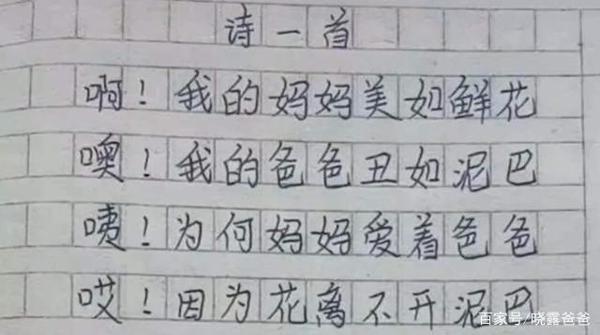 诗一首
啊！我的妈妈美如鲜花
噢！我的爸爸丑如泥巴
咦！为何妈妈爱着爸爸
哎！因为花离不开泥巴
百家号/晓露爸爸